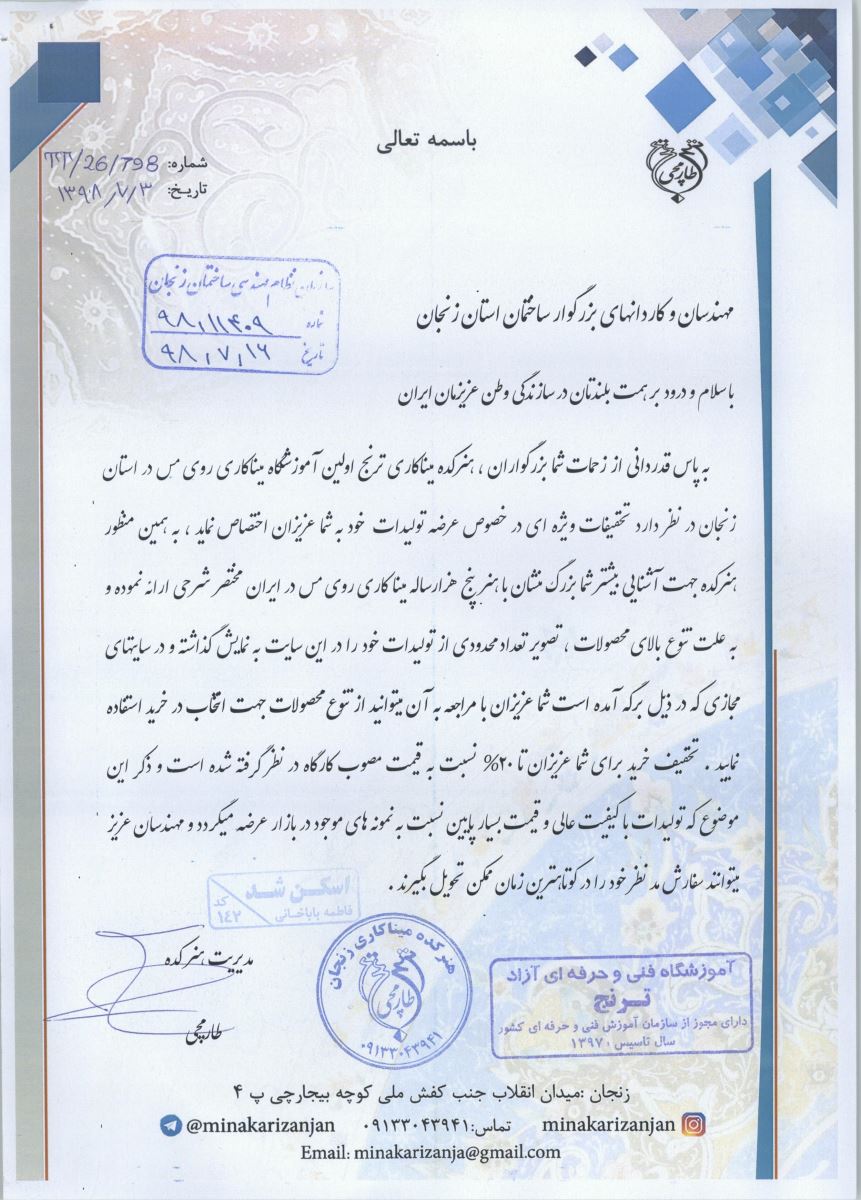 باسمه تعالی
شماره: ۲۲/26/798
تاریخ: ۱۳۹۸/۷/۳
طارمچی
سازمان نظام مهندسی ساختمان زنجان
شماره ۹۸,۱۱۴۰۹
تاریخ ۹۸,۷,۱۶
مهندسان و کاردانهای بزرگوار ساختمان استان زنجان
با سلام و درود بر همت بلندتان در سازندگی وطن عزیزمان ایران
به پاس قدردانی از زحمات شما بزرگواران ، هنرکده میناکاری ترنج اولین آموزشگاه میناکاری روی مس در استان
زنجان در نظر دارد تخفیفات ویژه ای در خصوص عرضه تولیدات خود به شما عزیزان اختصاص نماید ، به همین منظور
هنرکده جهت آشنایی بیشتر شما بزرگ منشان با هنر پنج هزارساله میناکاری روی مس در ایران مختصر شرحی ارائه نموده و
به علت تنوع بالای محصولات ، تصویر تعداد محدودی از تولیدات خود را در این سایت به نمایش گذاشته و در سایتهای
مجازی که در ذیل برگه آمده است شما عزیزان با مراجعه به آن میتوانید از تنوع محصولات جهت انتخاب در خرید استفاده
نمایید . تخفیف خرید برای شما عزیزان تا ۲۰% نسبت به قیمت مصوب کارگاه در نظر گرفته شده است و ذکر این
موضوع که تولیدات با کیفیت عالی و قیمت بسیار پایین نسبت به نمونه های موجود در بازار عرضه میگردد و مهندسان عزیز
میتوانند سفارش مد نظر خود را در کوتاهترین زمان ممکن تحویل بگیرند .
اسکن شد
فاطمه باباخانی
کد ۱۴۲
مدیریت هنرکده
طارمچی
هنرکده میناکاری زنجان
طارمچی
۰۹۱۳۳۰۴۳۹۴۱
آموزشگاه فنی و حرفه ای آزاد
ترنج
دارای مجوز از سازمان آموزش فنی و حرفه ای کشور
سال تاسیس :۱۳۹۷
زنجان :میدان انقلاب جنب کفش ملی کوچه بیجارچی پ ۴
minakarizanjan تماس:۰۹۱۳۳۰۴۳۹۴۱ @minakarizanjan
Email: minakarizanja@gmail.com